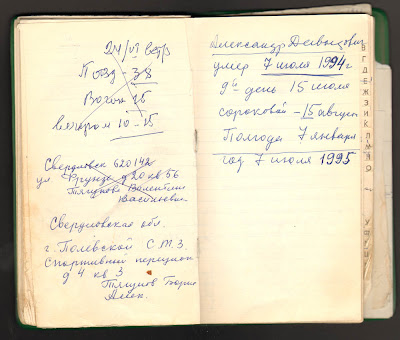 24/VI встр
Поезд - 38
Вагон 15
вечером 10-15
Свердловск 620142
ул Фрунзе д 20 кв 56
Тягунова Валентина
Васильевна
Свердловская обл.
г. Полевской С.Т.З.
Спортивный переулок
д 4 кв 3
Тягунов Борис
Алек.
Александр Давыдович
умер 7 июля 1994 г
9й день 15 июля
сороковой - 15 август
Полгода 7 января
год 7 июля 1995
В
Г
Д
Е
Ж
З
И
К
Л
М
Н
О